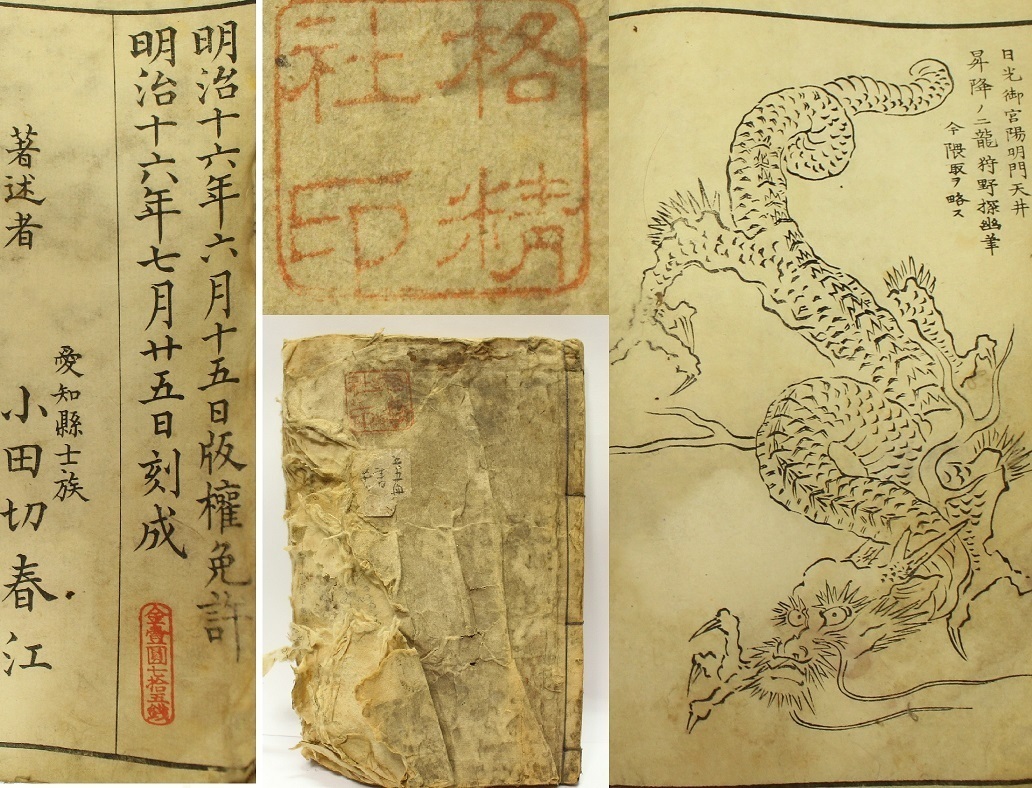 明治十六年六月十五日版權免許
明治十六年七月廿五日刻成
金壹圓七拾五錢
著述者
愛知縣士族
小田切春江
格精
社印
日光御宮陽明門天井
昇降ノ二龍狩野探幽筆
今隈取ヲ略ス